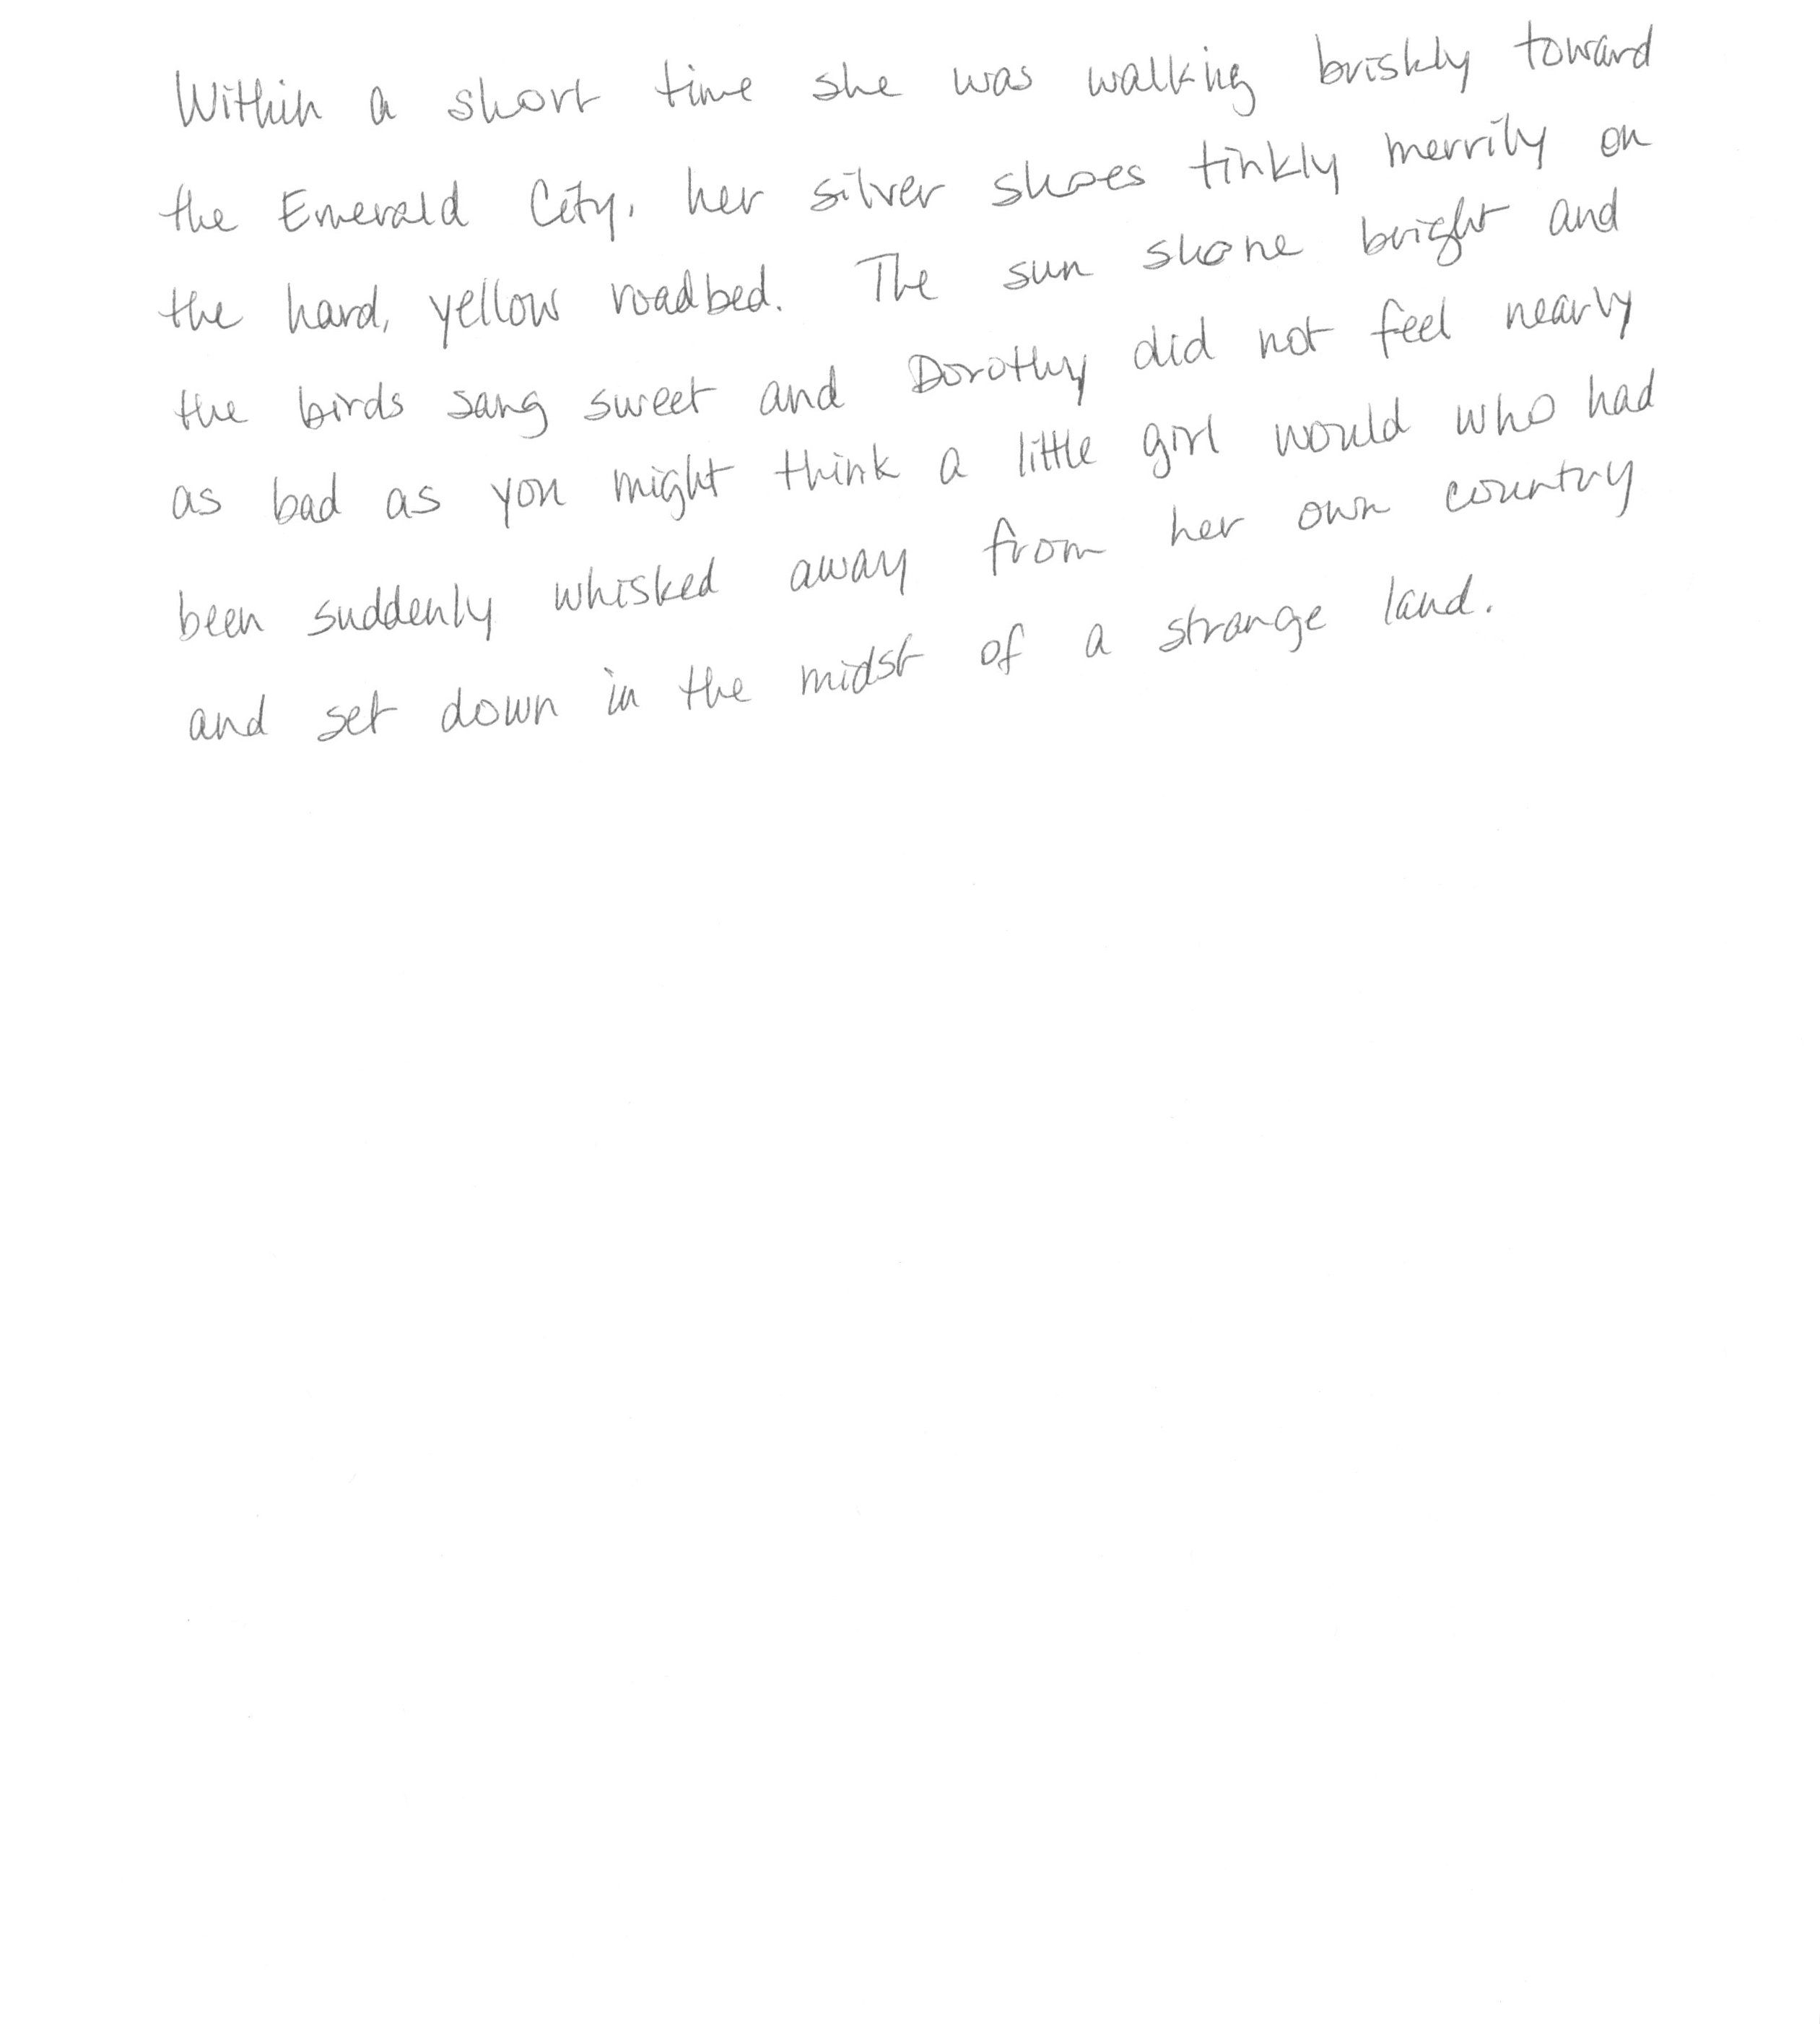 Within a short time she was walking briskly toward
the Emerald City, her silver shoes tinkly merrily on
the hard, yellow roadbed. The sun shone bright and
the birds sang sweet and Dorothy did not feel nearly
as bad as you might think a little girl would who had
been suddenly whisked away from her own country
and set down in the midst of a strange land.